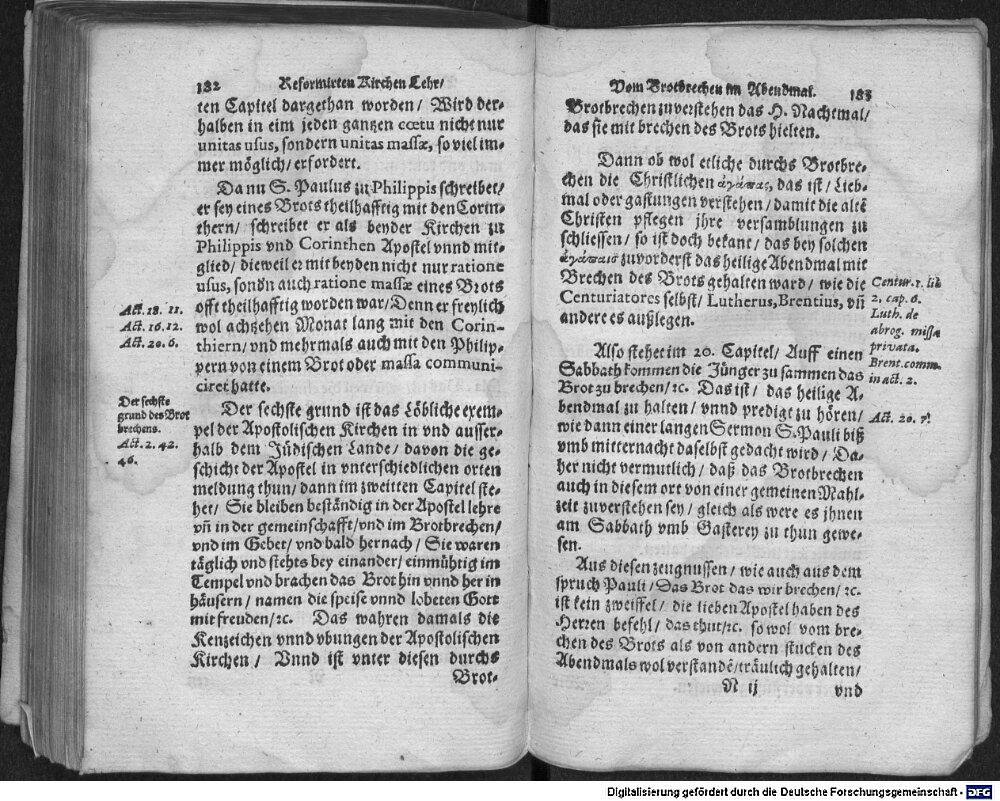 182 Reformirten Kirchen Lehr/
ten Capitel dargethan worden/ Wird der-
halben in eim jeden gantzen cœtu nicht nur
unitas usus, sondern unitas massæ, so viel im-
mer möglich/ erfordert.
Da nu S. Paulus zu Philippis schreibet/
er sey eines Brots theilhafftig mit den Corin-
thern/ schreibet er als beyder Kirchen zu
Philippis vnd Corinthen Apostel vnnd mit-
glied/ dieweil er mit beyden nicht nur ratione
usus, sondn auch ratione massæ eines Brots
offt theilhafftig worden war/ Denn er freylich
wol achtzehen Monat lang mit den Corin-
thiern/ vnd mehrmals auch mit den Philip-
pern von einem Brot oder massa communi-
ciret hatte.
Act. 18. 11.
Act. 16. 12.
Act. 20. 6.
Der sechste
grund des Brot
brechens.
Act. 2. 42.
46.
Der sechste grund ist das Löbliche exem-
pel der Apostolischen Kirchen in vnd ausser-
halb dem Jüdischen Lande/ davon die ge-
schicht der Apostel in vnterschiedlichen orten
meldung thun/ dann im zweitten Capitel ste-
het/ Sie bleiben beständig in der Apostel lehre
vñ in der gemeinschafft/ vnd im Brotbrechen/
vnd im Gebet/ vnd bald hernach/ Sie waren
täglich vnd stehts bey einander/ einmühtig im
Tempel vnd brachen das Brot hin vnnd her in
häusern/ namen die speise vnnd lobeten Gott
mit freuden/ ꝛc. Das wahren damals die
Kenzeichen vnnd vbungen der Apostolischen
Kirchen/ Vnnd ist vnter diesen durchs
Brot-
Vom Brotbrechen im Abendmal. 183
Brotbrechen zu verstehen das H. Nachtmal/
das sie mit brechen des Brots hielten.
Dann ob wol etliche durchs Brotbre-
chen die Christlichen ἀγάπας, das ist/ Lieb-
mal oder gastungen verstehen/ damit die altē
Christen pflegen jhre versamblungen zu
schliessen/ so ist doch bekant/ das bey solchen
ἀγάπαις zuvorderst das heilige Abendmal mit
Brechen des Brots gehalten ward/ wie die
Centuriatores selbst/ Lutherus, Brentius, vñ
andere es außlegen.
Centur. 1. lib
2, cap. 6.
Luth. de
abrog. missa
privata.
Brent. comm.
in act. 2.
Also stehet im 20. Capitel/ Auff einen
Sabbath kommen die Jünger zu sammen das
Brot zu brechen/ ꝛc. Das ist/ das heilige A-
bendmal zu halten/ vnnd predigt zu hören/
wie dann einer langen Sermon S. Pauli biß
vmb mitternacht daselbst gedacht wird/ Da-
her nicht vermutlich/ daß das Brotbrechen
auch in diesem ort von einer gemeinen Mahl-
zeit zuverstehen sey/ gleich als were es jhnen
am Sabbath vmb Gasterey zu thun gewe-
sen.
Act. 20. 7.
Aus diesen zeugnussen/ wie auch aus dem
spruch Pauli/ Das Brot das wir brechen/ ꝛc.
ist kein zweiffel/ die lieben Apostel haben des
Herren befehl/ das thut/ ꝛc. so wol vom bre-
chen des Brots als von andern stucken des
Abendmals wol verstandē/ träulich gehalten/
N ij vnd
Digitalisierung gefördert durch die Deutsche Forschungsgemeinschaft - DFG